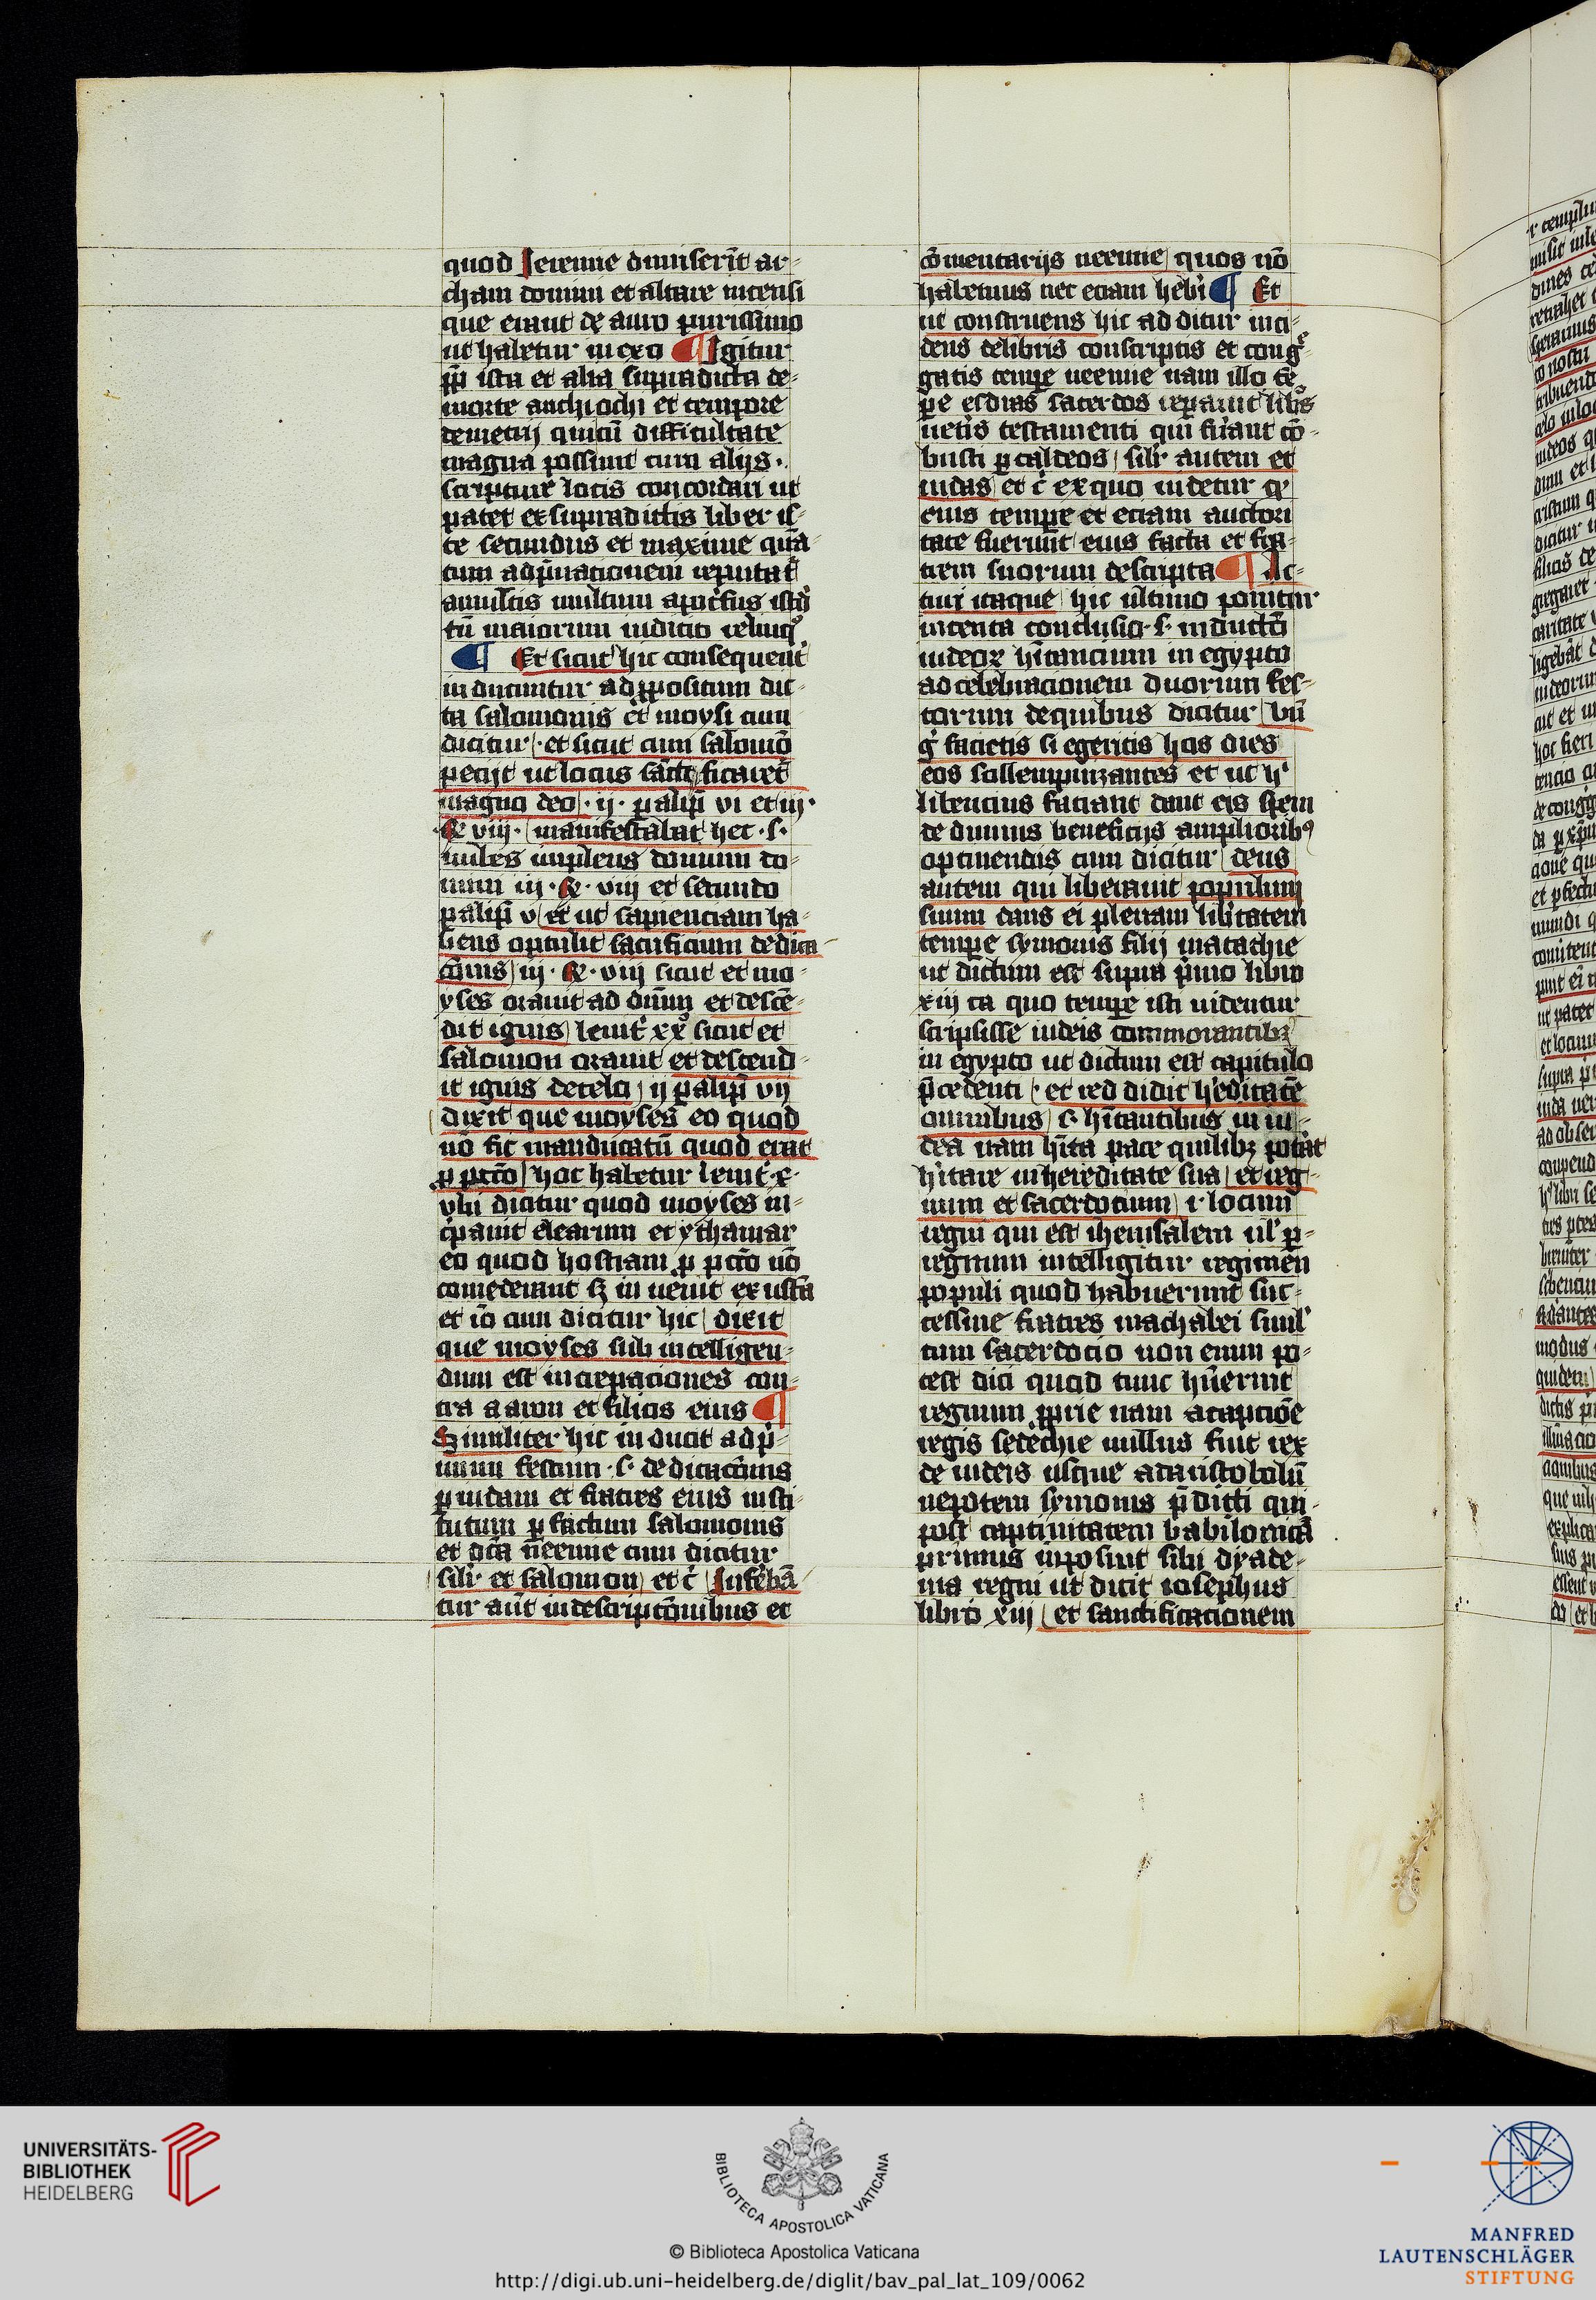 quod Ieremie dimiserīt ar-
cham domini et altare incensi
que erant de auro purissimo
ut habetur in exo ¶ Igitur
ꝓpt̄ ista et alia supradicta de-
morte anchiochi et tempore
demetrij qui cū difficultate
magna possunt cum alijs.
scripture locis concordari ut
patet ex supradictis liber is-
te secundus et maxime quā-
tum ad p̄narracionem reputat᷑
a multis multum apoc̄fus
tn̄ maiorum iudicio relinqͦ
¶ Et sicut hic consequent᷑
inducuntur ad ꝓpositum dic-
ta salomonis et moysi cum
dicitur et sicut cum salomō
pecijt ut locus sāctificaret᷑
magno deo .ij. ꝑalip̄ vi et iij.
Re viij. manifestabat hec .s.
nubes implens domum do-
mini iij. Re. viij et secundo
ꝑalip̄ v et ut sapienciam ha-
bens optulit sacrificium dedica
cōnis iij. Re. viij sicut et mo-
yses orauit ad dn̄m et descē-
dit ignis leuit᷑ xxͦ sicut et
salomon orauit et descend-
it ignis de celo ij ꝑalip̄ vij
dixit que moyses eo quod
nō sit manducatū quod erat
ꝓ pctō hoc habetur leuit᷑ x.
vbi dicitur quod moyses in-
c̄pauit eleazarum et ythamar
eo quod hostiam ꝓ pctō nō
comederant sꝫ inuenit exustā
et iō cum dicitur hic dixit
que moyses sub intelligen-
dum est increpaciones con-
tra aaron et filios eius ¶
Similiter hic inducit ad p̄-
mum festum .s. dedicacōnis
ꝑ iudam et fratres eius insti-
tutum ꝑ factum salomonis
et dc̄a neemie cum dicitur
sil᷑r et salomon et c̄ Inferebā
tur aūt in descriptōnibus et
cōmentarijs neemie quos nō
habemus nec eciam hebr̄i ¶ Et
ut construens hic additur inci-
dens de libris conscriptis et congͤ
gatis tempe neemie nam illo tē-
pe esdras sacerdos reparauit libͦs
uetis testamenti qui fuerant cō-
busti ꝑ caldeos sil᷑r autem et
iudas et c̄ ex quo uidetur ꝙ
eius tempe et eciam auctori
tate fuerunt eius facta et fra-
trem suorum descripta ¶ Ac-
turi itaque hic ultimo ponitur
intenta conclusio .s. inductō
iudeoꝝ hītancium in egypto
ad celebracionem duorum fes-
torum de quibus dicitur bn̄
gͦ facietis si egeritis hos dies
eos sollempnizantes et ut hͦ
libencius faciant dant eis spem
de diuinis beneficijs amplioribꝯ
optinendis cum dicitur deus
autem qui liberauit populum
suum dans ei plenam lib̄tatem
tempe symonis filij matathie
ut dictum est supra pͥmo libro
xiij ca quo tempe isti uidentur
scripsisse iudeis commorantibꝫ
in egypto ut dictum est capitulo
p̄cedenti et reddidit h̄editatē
omnibus .s. hītantibus in iu-
dea nam hīta pace quilibꝫ potāt
hītare in hereditate sua et reg-
num et sacerdotium .i. locum
regni qui est iherusalem ul᷑ ꝑ-
regnum intelligitur regimen
populi quod habuerunt suc-
cessiue fratres machabei simul᷑
cum sacerdocio non enim po-
test dici quod tunc hūerunt
regnum ꝓprie nam a captiōe
regis sedechie nullus fuit rex
de iudeis usque ad aristobolū
nepotem symonis p̄dicti qui-
post captiuitatem babilonicā
primus imposuit sibi dyade-
ma regni ut dicit iosephus
libro xiij et sanctificacionem
UNIVERSITÄTS-
BIBLIOTHEK
HEIDELBERG
BIBLIOTECA APOSTOLICA VATICANA
© Biblioteca Apostolica Vaticana
http://digi.ub.uni-heidelberg.de/diglit/bav_pal_lat_109/0062
MANFRED
LAUTENSCHLÄGER
STIFTUNG